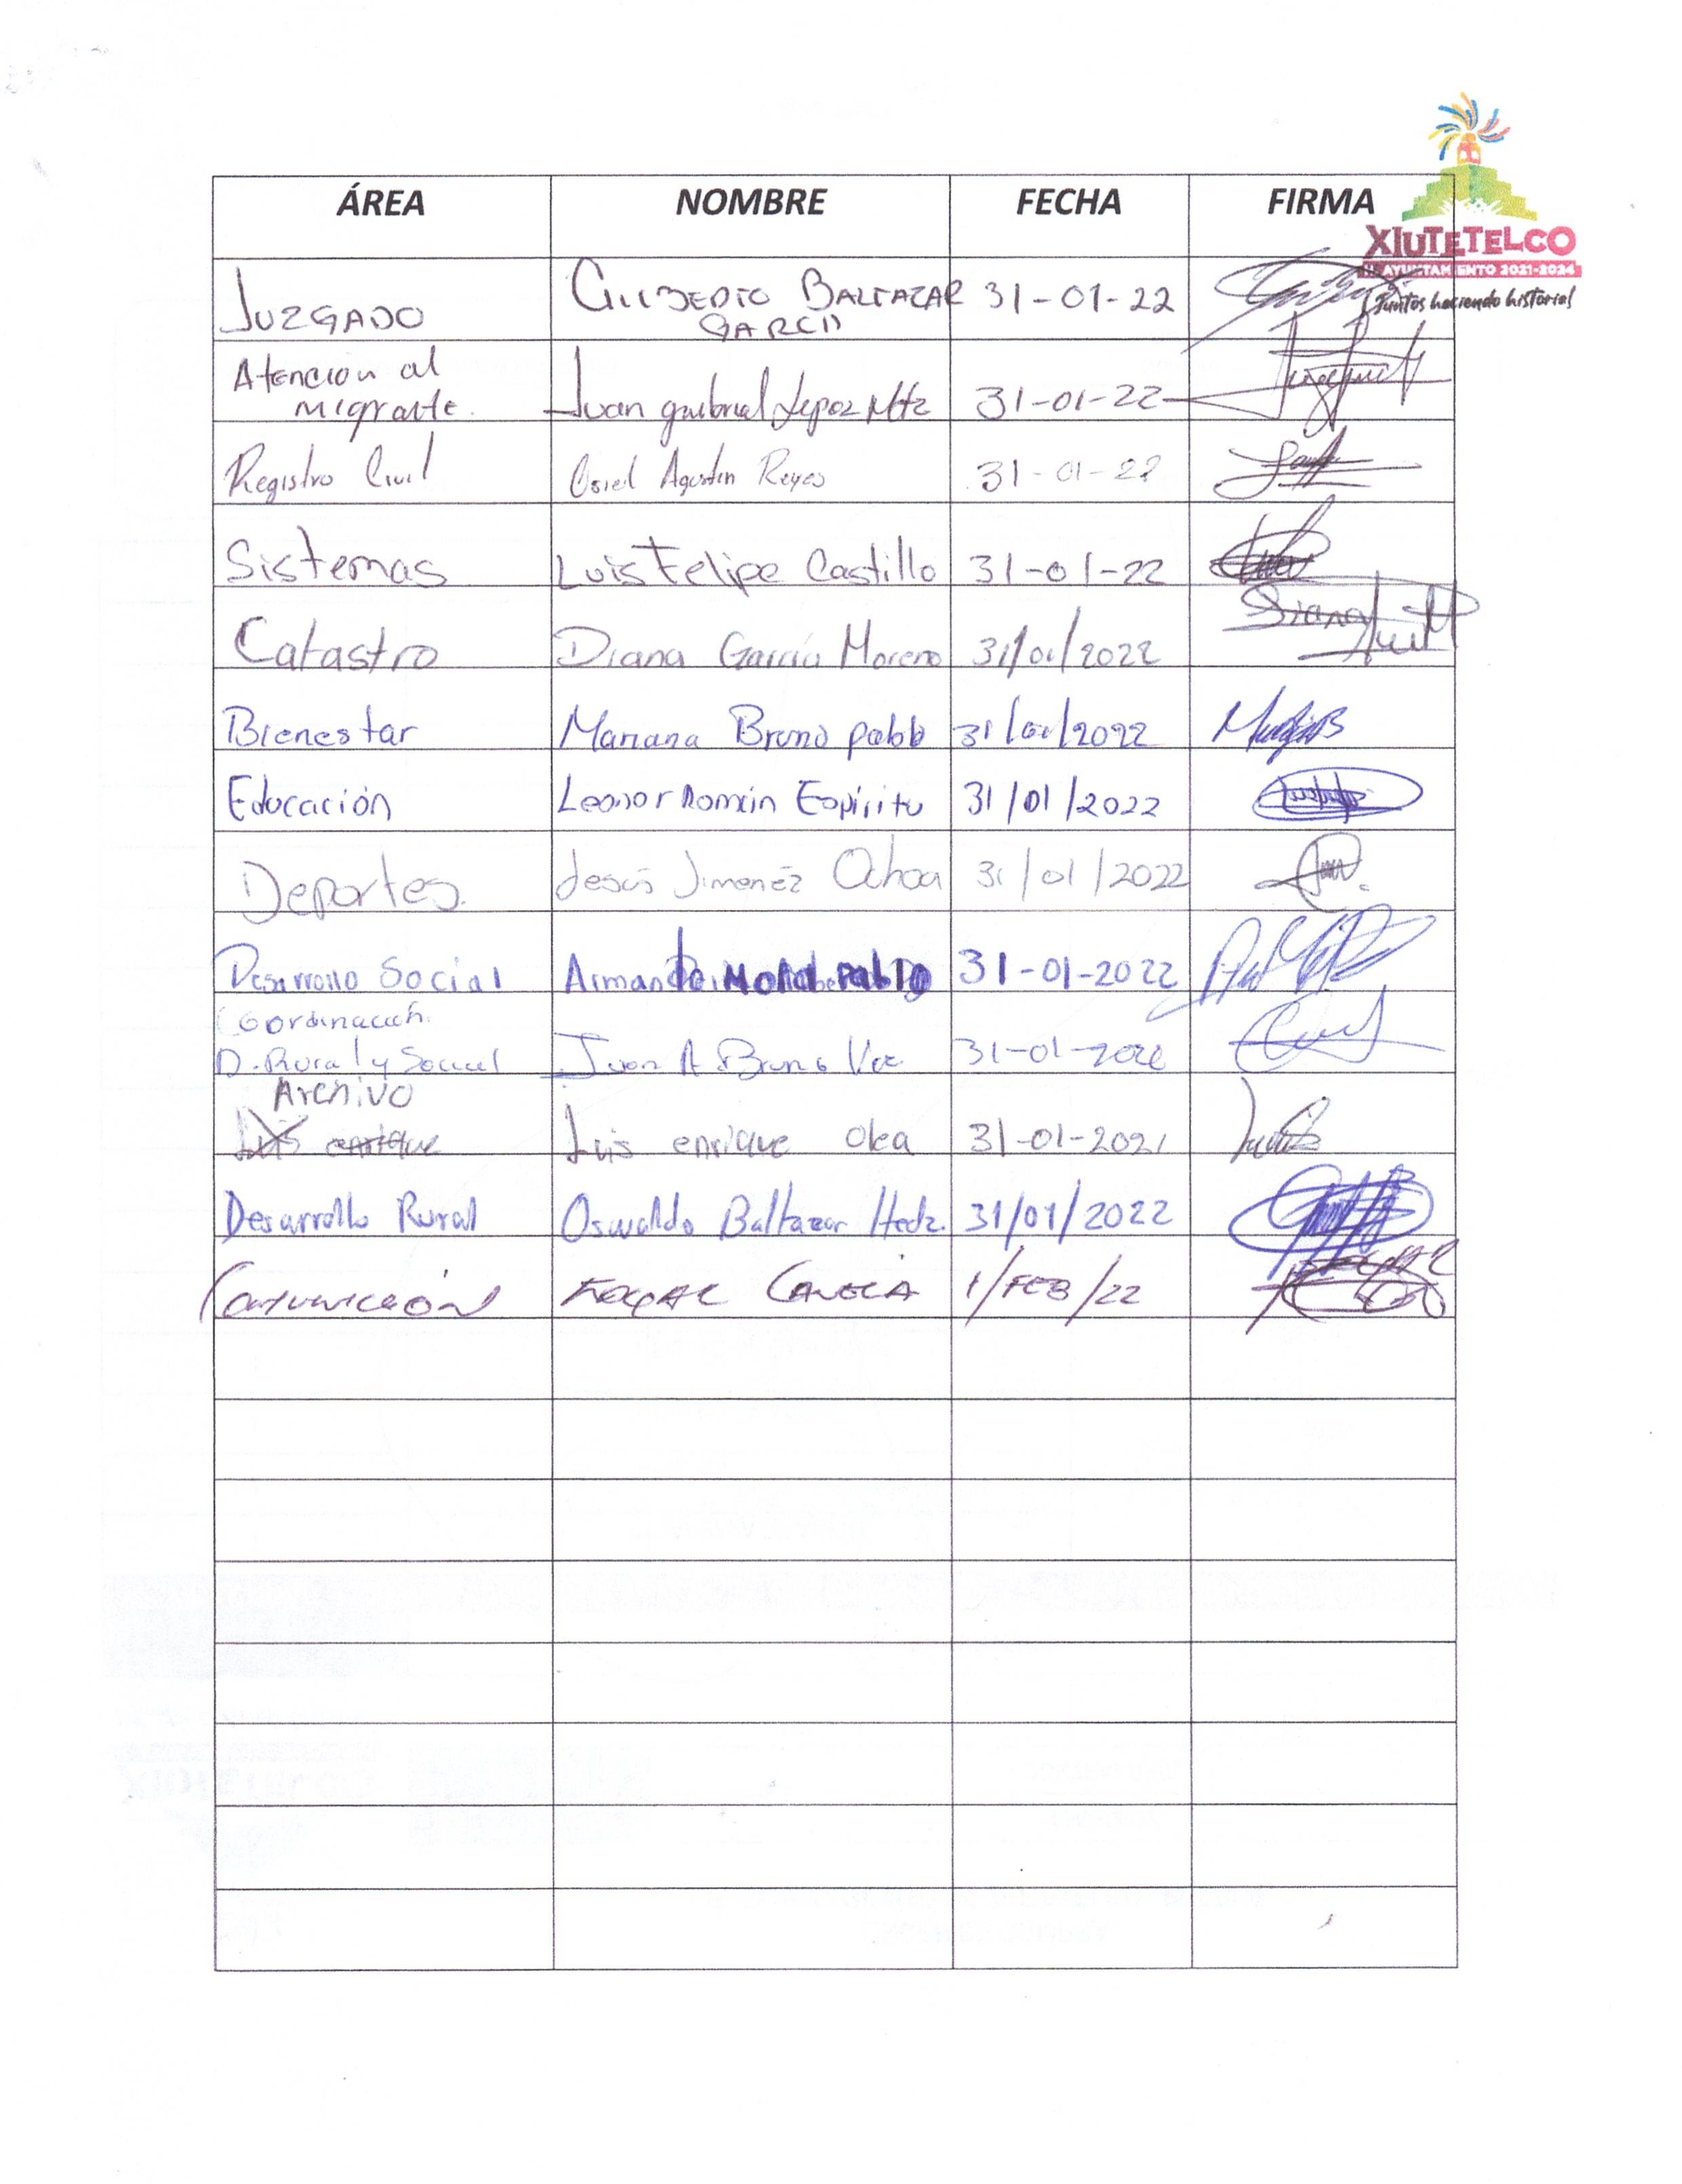 ÁREA NOMBRE FECHA FIRMA
XIUTETELCO
H. AYUNTAMIENTO 2021-2024
¡Juntos haciendo historia!
JUZGADO GILBERTO BALTAZAR 31-01-22
GARCIA
Atencion al
migrante. Juan gabriel Lopez Mtz 31-01-22
Registro Civil Osiel Agustin Reyes 31-01-22
Sistemas Luis Felipe Castillo 31-01-22
Catastro Diana García Moreno 31/01/2022
Diana
Bienestar Mariana Bruno pablo 31/01/2022
Educación Leonor Román Espíritu 31/01/2022
Deportes. Jesús Jimenéz Ochoa 31/01/2022
Desarrollo Social Armando Mora Pablo 31-01-2022
Coordinación.
D. Rural y Social Juan A. Bruno 31-01-2022
Archivo
Luis enrique Luis enrique olea 31-01-2021
Desarrollo Rural Oswaldo Baltazar Hedz. 31/01/2022
Comunicación 1/FEB/22